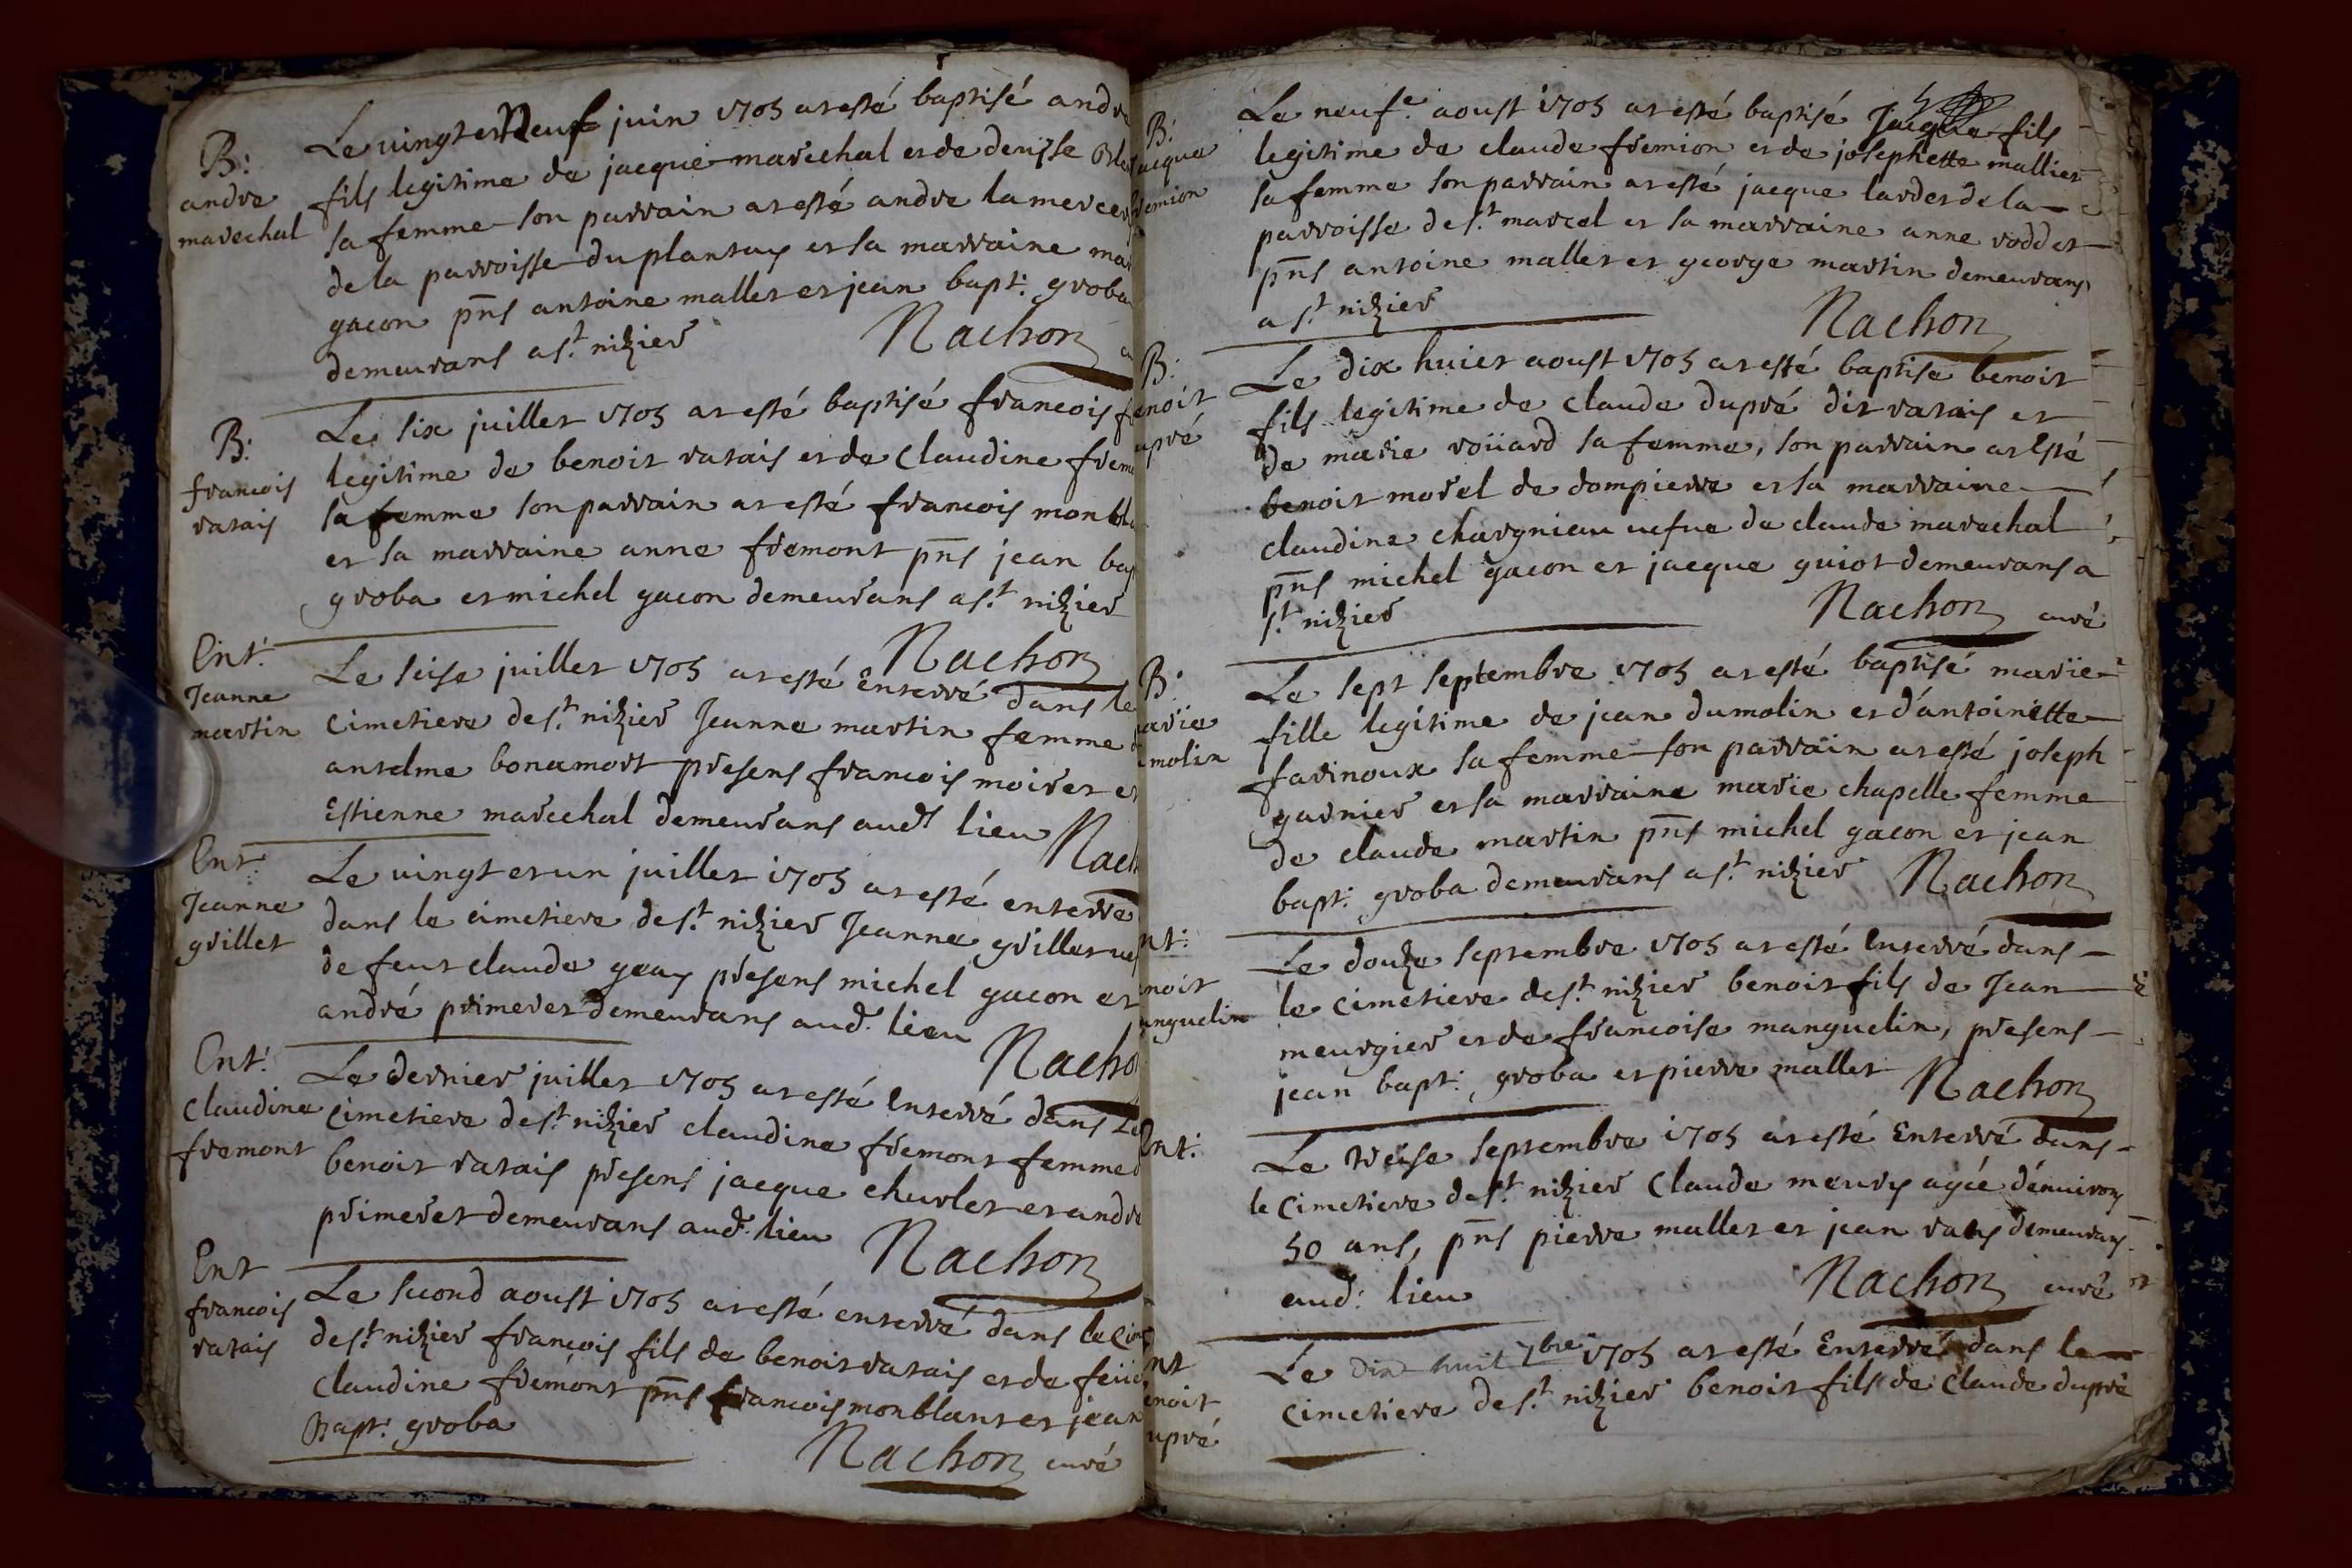 B:
andre
marechal
Le vingt et Neuf juin 1705 at esté baptisé andre
fils legitime de jacque marechal et de denyse
sa femme son parrain at esté andre lamercer
de la parroisse du plantay et sa marraine mar
gacon pn̄s antoine mallet et jean bapt: groba
demeurans a st. nizier
Nachon
B:
francois
ratais
Le six juillet 1705 at esté baptisé francois f
legitime de benoit ratais et de claudine frem
sa femme son parrain at esté francois monbla
et sa marraine anne fremont pn̄s jean bap
groba et michel gacon demeurans a st. nizier
Nachon
Ent:
Jeanne
martin
Le seise juillet 1705 at esté Enterré dans le
cimetiere de st. nizier Jeanne martin femme d
anselme bonamort presens francois moiret et
Estienne marechal demeurans audt lieu
Nach
Ent:
Jeanne
grillet
Le vingt et un juillet 1705 at esté enterré
dans le cimetiere de st. nizier Jeanne grillet vef
de feut claude geay presens michel gacon et
andré primeret demeurans aud. lieu
Nacho
Ent:
Claudine
fremont
Le dernier juillet 1705 at esté Enterré dans Le
cimetiere de st. nizier claudine fremont femme d
benoit ratais presens jacque churlet et andre
primeret demeurans aud. lieu
Nachon
Ent
francois
ratais
Le second aoust 1705 at esté enterré dans le cim
de st. nizier francois fils de benoit ratais et de feüe
Claudine fremont pn̄s francois monblant et jean
Bapt: groba
Nachon curé
B:
acque
emion
Le neufe. aoust 1705 at esté baptisé Jacque fils
legitime de claude fremion et de josephette mallier
sa femme son parrain at esté jacque lardet de la
parroisse de st. marcel et sa marraine anne roddet
pn̄s antoine mallet et george martin demeurans
a st. nizier
Nachon
B:
enoit
upré
Le dix huict aoust 1705 at esté baptise benoit
fils legitime de claude dupré dit ratais et
de marie roüard sa femme, son parrain at Esté
benoit morel de dompierre et sa marraine
claudine chargniau vefue de claude marechal
pn̄s michel gacon et jacque guiot demeurans a
st. nizier
Nachon curé
B:
arie
molin
Le sept septembre 1705 at esté baptisé marie
fille legitime de jean dumolin et d'antoinette
farinoux sa femme son parrain at esté joseph
garnier et sa marraine marie chapelle femme
de claude martin pn̄s michel gacon et jean
bapt: groba demeurans a st. nizier
Nachon
nt:
noit
anguelin
Le douze septembre 1705 at esté Enterré dans
le cimetiere de st. nizier benoit fils de Jean
meurgier et de francoise manguelin, presens
jean bapt: groba et pierre mallet
Nachon
Ent:
Le treise septembre 1705 at esté Enterré dans
le cimetiere de st. nizier Claude meury agée d'énuiron
50 ans, pn̄s pierre mallet et jean ratis demeurans
aud: lieu
Nachon curé
nt
enoit
upré
Le dix huit 7bre 1705 at esté Enterré dans le
cimetiere de st. nizier benoit fils de Claude dupré